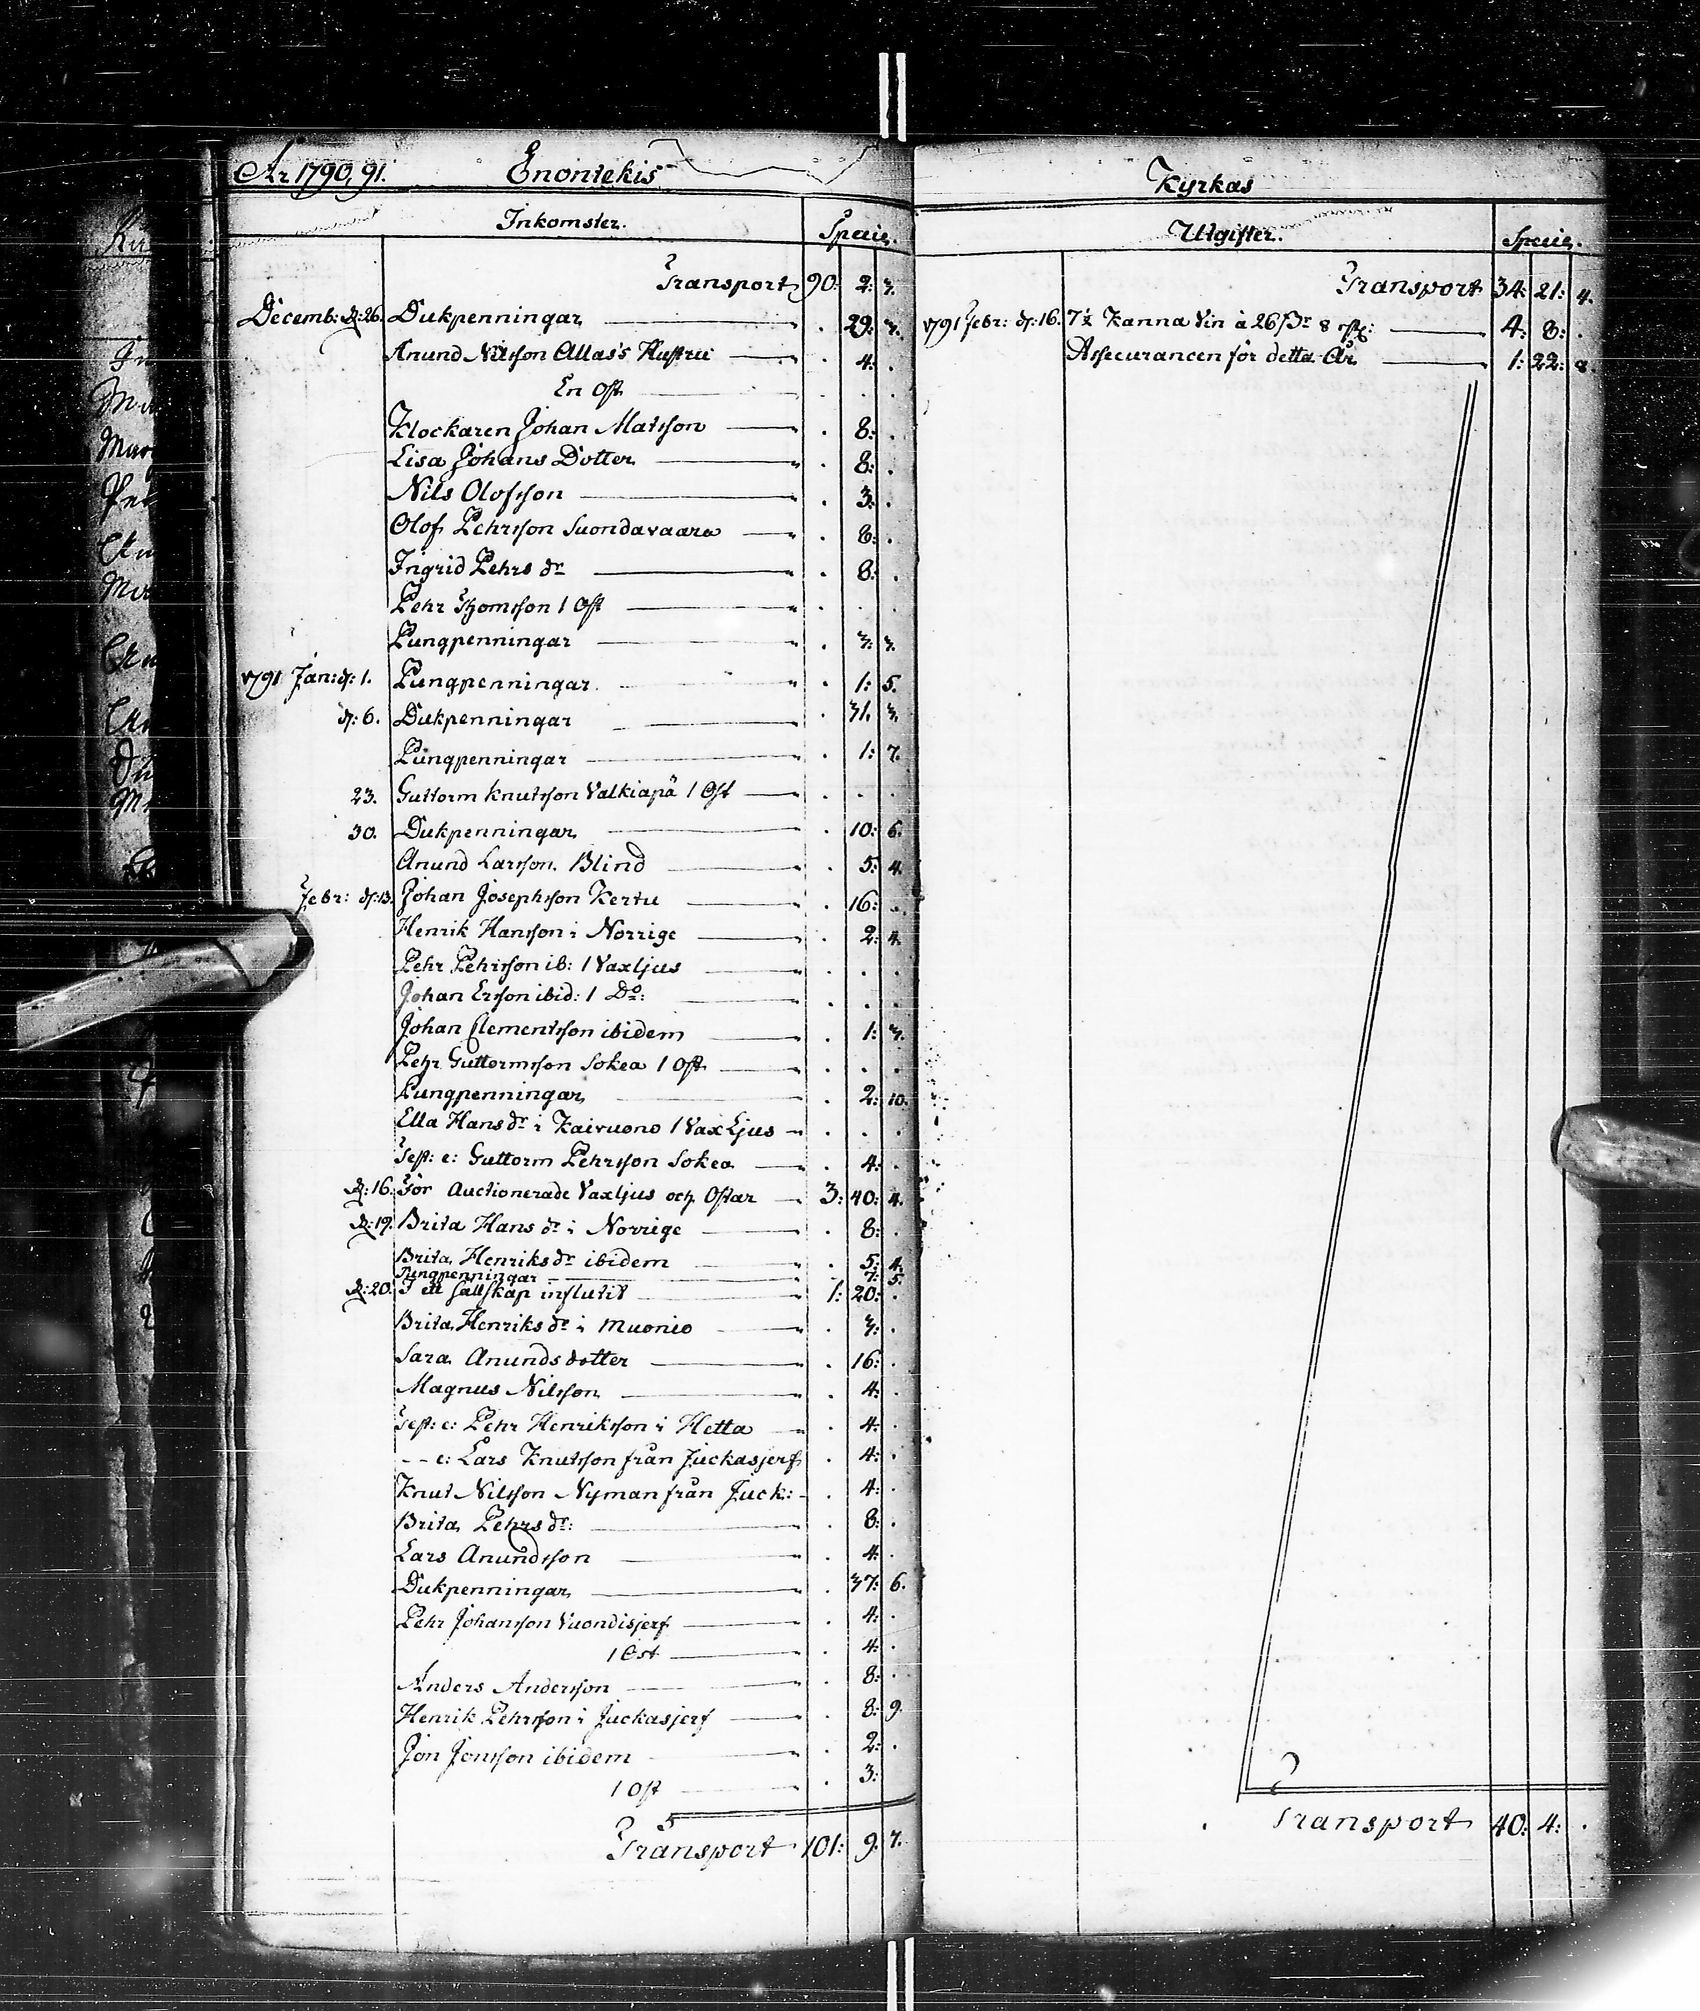 År 1790, 91. Enontekis
Inkomster. Specie.
Transport 90: 2: 3.
Decemb: d: 26. Dukpenningar . 29: 3.
Anund Nilsson Allas's Hustru . 4: .
En Ost . . .
Klockaren Johan Matsson . 8: .
Lisa Johans Dotter . 8: .
Nils Olofsson . 3: .
Olof Pehrsson Suondavaara . 8: .
Ingrid Pehrs dr . 8: .
Pehr Thomsson 1 Ost . . .
Pungpenningar . 3: 3.
1791 Jan: d: 1. Pungpenningar . 1: 5.
d: 6. Dukpenningar . 31. 3.
Pungpenningar . 1: 7.
23. Guttorm Knutsson Valkiapä 1 Ost . . .
30. Dukpenningar . 10: 6.
Anund Larsson Blind . 5: 4.
Febr: d: 13. Johan Josephsson Kertu . 16: .
Henrik Hansson i Norrige . 2: 4.
Pehr Pehrsson ib: 1 Vaxljus . . .
Johan Ersson ibid: 1 Do: . . .
Johan Clementsson ibidem . 1: 3.
Pehr Guttormsson Sokea 1 Ost . . .
Pungpenningar . 2: 10.
Ella Hans dr i Kaivuono 1 Vax Ljus . . .
Test: e: Guttorm Pehrsson Sokea . 4: .
d: 16. För Auctionerade Vaxljus och Ostar 3: 40: 4.
d: 19. Brita Hans dr i Norrige . 8: .
Brita Henriks dr ibidem . 5: 4.
Pungpenningar . 7: 5.
d: 20. I ett sällskap influtit 1: 20: .
Brita Henriks dr i Muonio . 3: .
Sara Anunds dotter . 16: .
Magnus Nilsson . 4: .
Test: e: Pehr Henriksson i Hetta . 4: .
- - e: Lars Knutsson från Juckasjerf . 4: .
Knut Nilsson Nyman från Juck: . 4: .
Brita Pehrs dr: . 8: .
Lars Anundsson . 4: .
Dukpenningar . 37: 6.
Pehr Johansson Vuondisjerf . 4: .
1 Ost . 4: .
Anders Andersson . 8: .
Henrik Pehrsson i Juckasjerf . 8: 9.
Jon Jonsson ibidem . 2: .
1 Ost . 3:
Transport 101: 9: 7.
Kyrkas
Utgifter. Specie.
Transport 34: 21: 4.
1791 Febr: d: 16. 7½ Kanna Vin à 26 ß 8 rst: 4: 8: .
Assecurancen för detta År 1: 22: 8.
Transport 40: 4: .